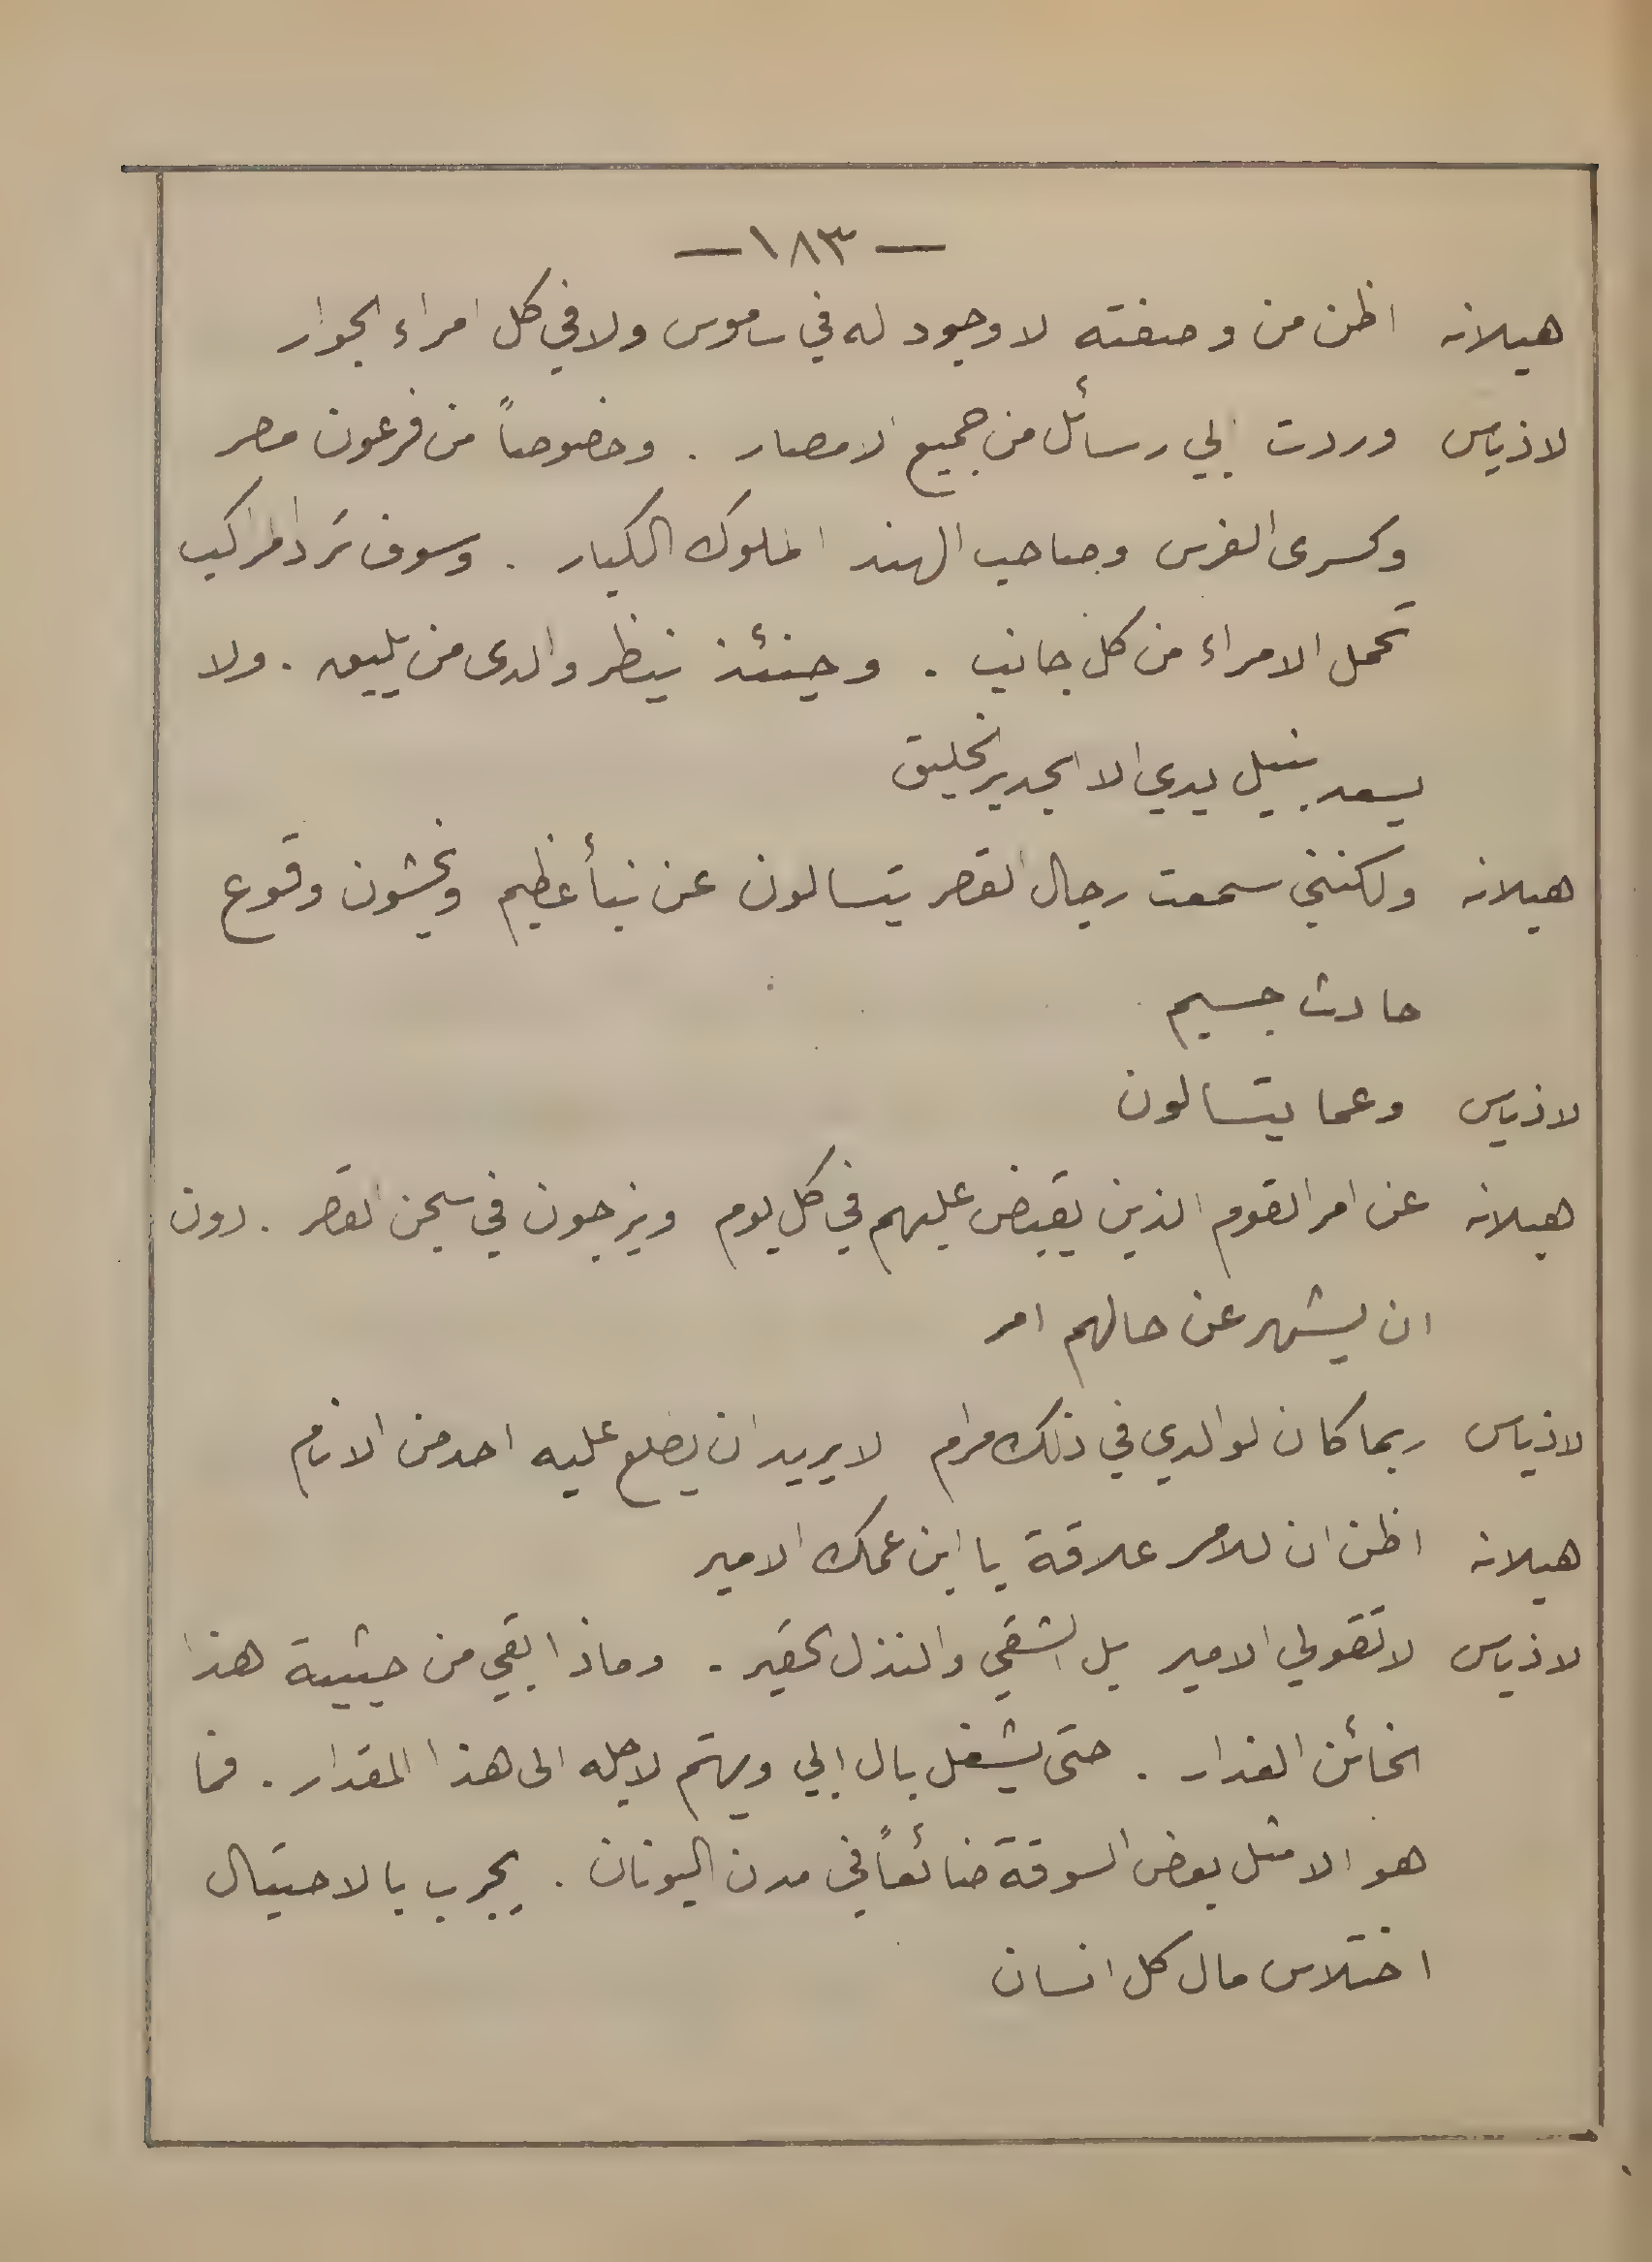 — ١٨٣ —
هيلانه اظن من وصفته لا وجود له في ساموس ولا في كل امراء الجوار
لاذياس وردت الي رسائل من جميع الامصار . وخصوصاً من فرعون مصر
وكسرى الفرس وصاحب الهند الملوك الكبار . وسوف ترد المراكب
تحمل الامراء من كل جانب . وحينئذ ينظر والدى من يليق . ولا
يسعد بنيل يدي الا الجدير الخليق
هيلانه ولكنني سمعت رجال القصر يتسالون عن نبأ عظيم ويخشون وقوع
حادث جسيم
لاذياس وعما يتسالون
هيلانه عن امر القوم الذين يقبض عليهم في كل يوم ويزجون في سجن القصر . دون
ان يشهر عن حالهم امر
لاذياس ربما كان لوالدي في ذلك مرام لا يريد ان يطلع عليه احد من الانام
هيلانه اظن ان للامر علاقة با ابن عمك الامير
لاذياس لا تقولي الامير بل الشقي والنذل الحقير . وماذا بقي من حيثية هذا
الخائن الغدار . حتى يشغل بال ابي ويهتم لاجله الى هذا المقدار . فما
هو الا مثل بعض السوقة ضائعاً في مدن اليونان . يجرب بالاحتيال
اختلاس مال كل انسان